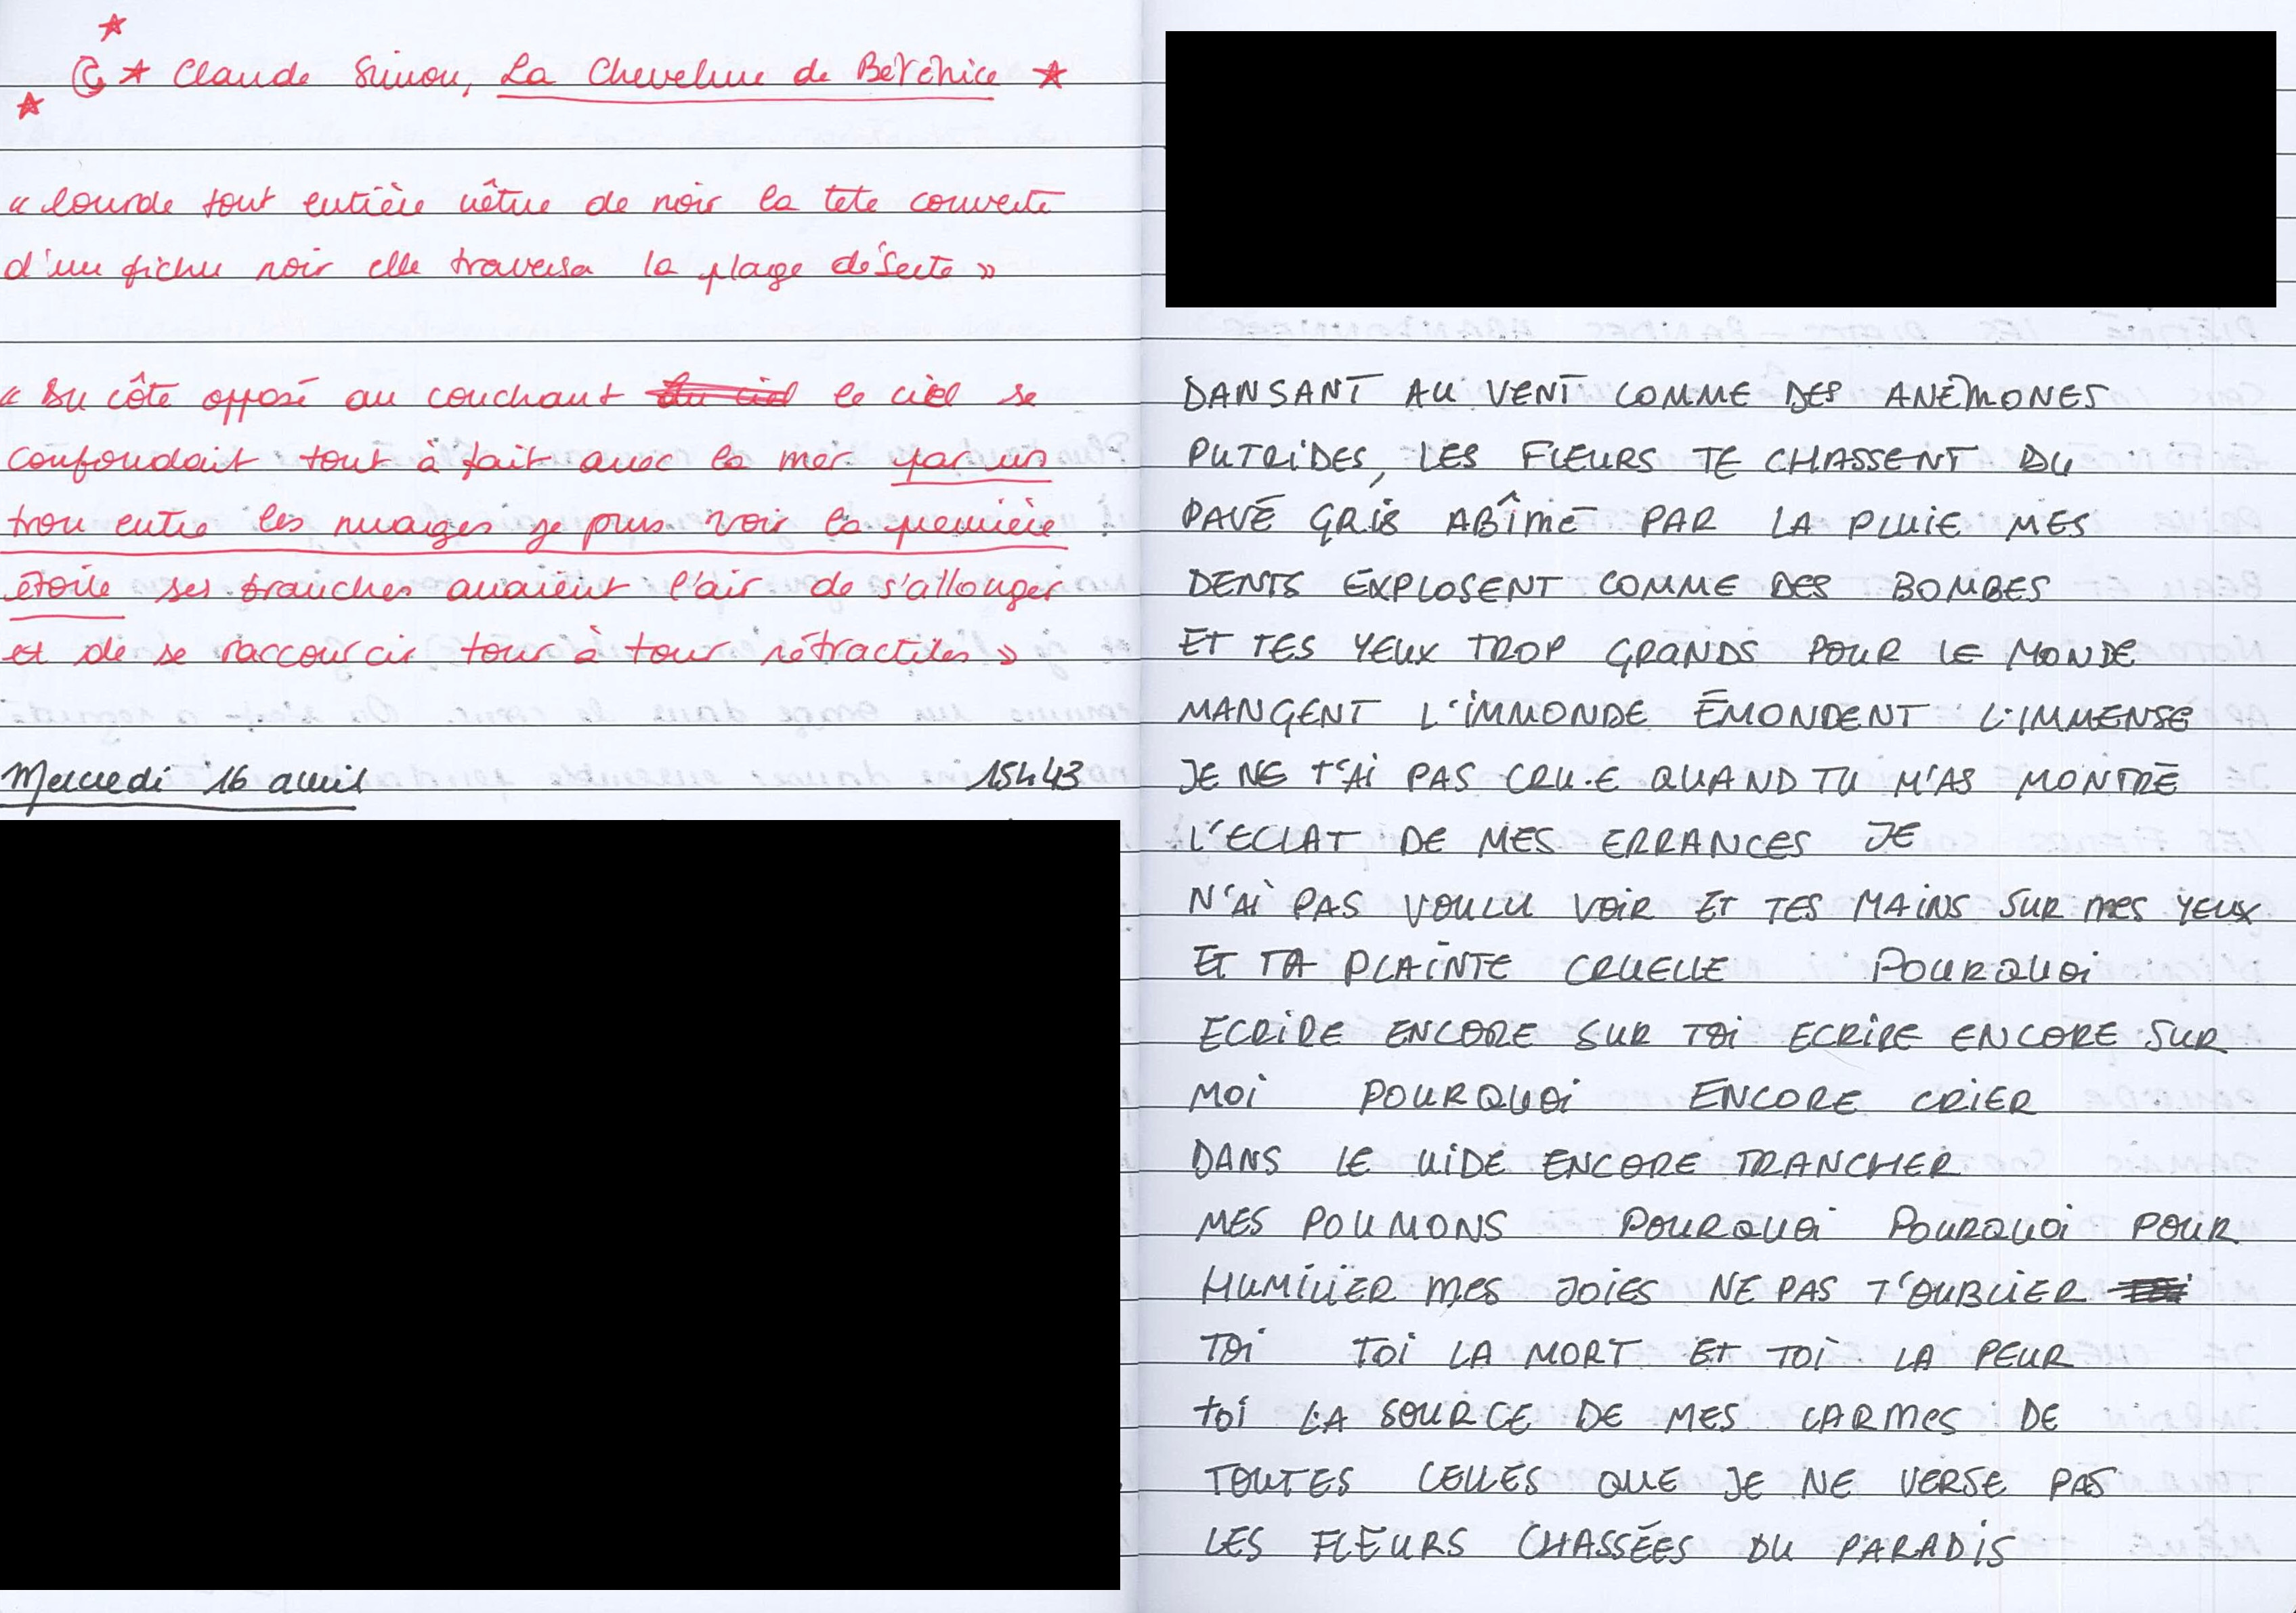 Claude Simon, La Chevelure de Bérénice
« lourde tout entière vêtue de noir la tête couverte
d'un fichu noir elle traversa la plage déserte »
« Du côté opposé au couchant du ciel le ciel se
confondait tout à fait avec la mer par un
trou entre les nuages je pus voir la première
étoile ses branches avaient l'air de s'allonger
et de se raccourcir tour à tour rétractiles »
Mercredi 16 avril 15h43
DANSANT AU VENT COMME DES ANÉMONES
PUTRIDES, LES FLEURS TE CHASSENT DU
PAVÉ GRIS ABÎMÉ PAR LA PLUIE MES
DENTS EXPLOSENT COMME DES BOMBES
ET TES YEUX TROP GRANDS POUR LE MONDE
MANGENT L'IMMONDE ÉMONDENT L'IMMENSE
JE NE T'AI PAS CRU·E QUAND TU M'AS MONTRÉ
L'ECLAT DE MES ERRANCES JE
N'AI PAS VOULU VOIR ET TES MAINS SUR MES YEUX
ET TA PLAINTE CRUELLE POURQUOI
ECRIRE ENCORE SUR TOI ECRIRE ENCORE SUR
MOI POURQUOI ENCORE CRIER
DANS LE VIDE ENCORE TRANCHER
MES POUMONS POURQUOI POURQUOI POUR
HUMILIER MES JOIES NE PAS T'OUBLIER
TOI TOI LA MORT ET TOI LA PEUR
TOI LA SOURCE DE MES LARMES DE
TOUTES CELLES QUE JE NE VERSE PAS
LES FLEURS CHASSÉES DU PARADIS